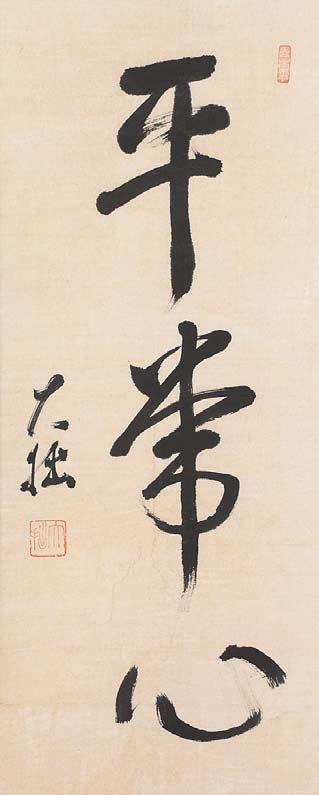 平常心
大拙